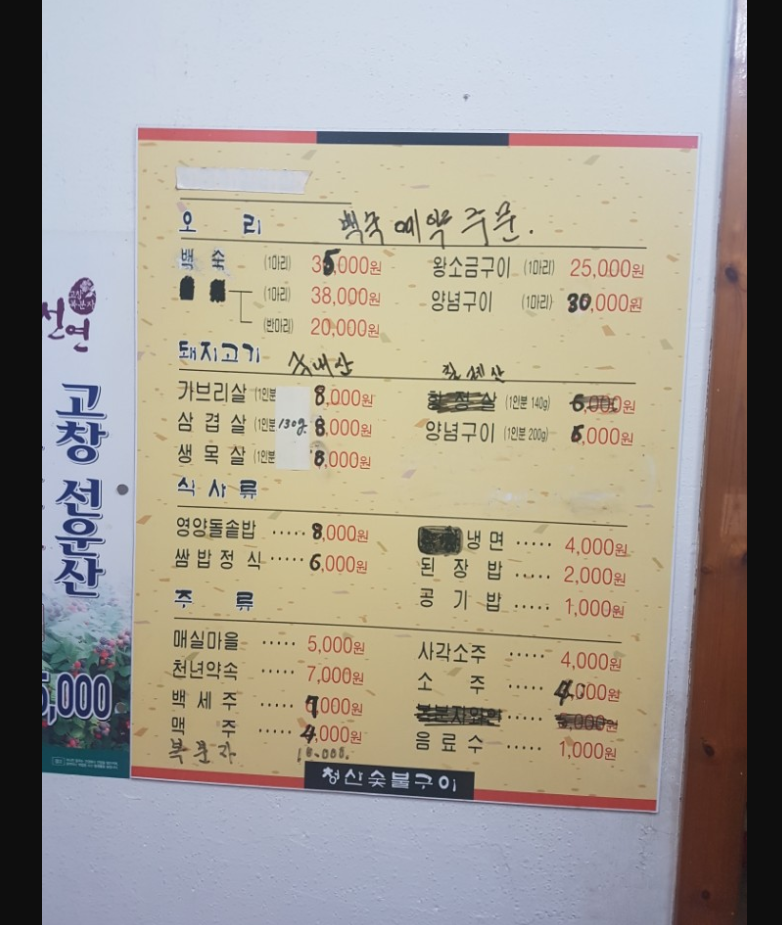 오 리 백숙 예약 주문.
백 숙 (1마리) 35,000원 왕소금구이 (1마리) 25,000원
(1마리) 38,000원 양념구이 (1마리) 30,000원
(반마리) 20,000원
돼지고기 국내산
카브리살 (1인분 8,000원 (1인분 140g) 6,000원
삼 겹 살 (1인분 130g. 8,000원 양념구이 (1인분 200g) 6,000원
생 목 살 (1인분 8,000원
식 사 류
영양돌솥밥 ····· 8,000원 냉 면 ····· 4,000원
쌈 밥 정 식 ····· 6,000원 된 장 밥 ····· 2,000원
공 기 밥 ····· 1,000원
주 류
매실마을 ····· 5,000원 사각소주 ····· 4,000원
천년약속 ····· 7,000원 소 주 ····· 4,000원
백 세 주 ····· 7,000원 복분자와인 ····· 5,000원
맥 주 ····· 4,000원 음 료 수 ····· 1,000원
복분자
청산숯불구이
선연
고창 선운산
5,000